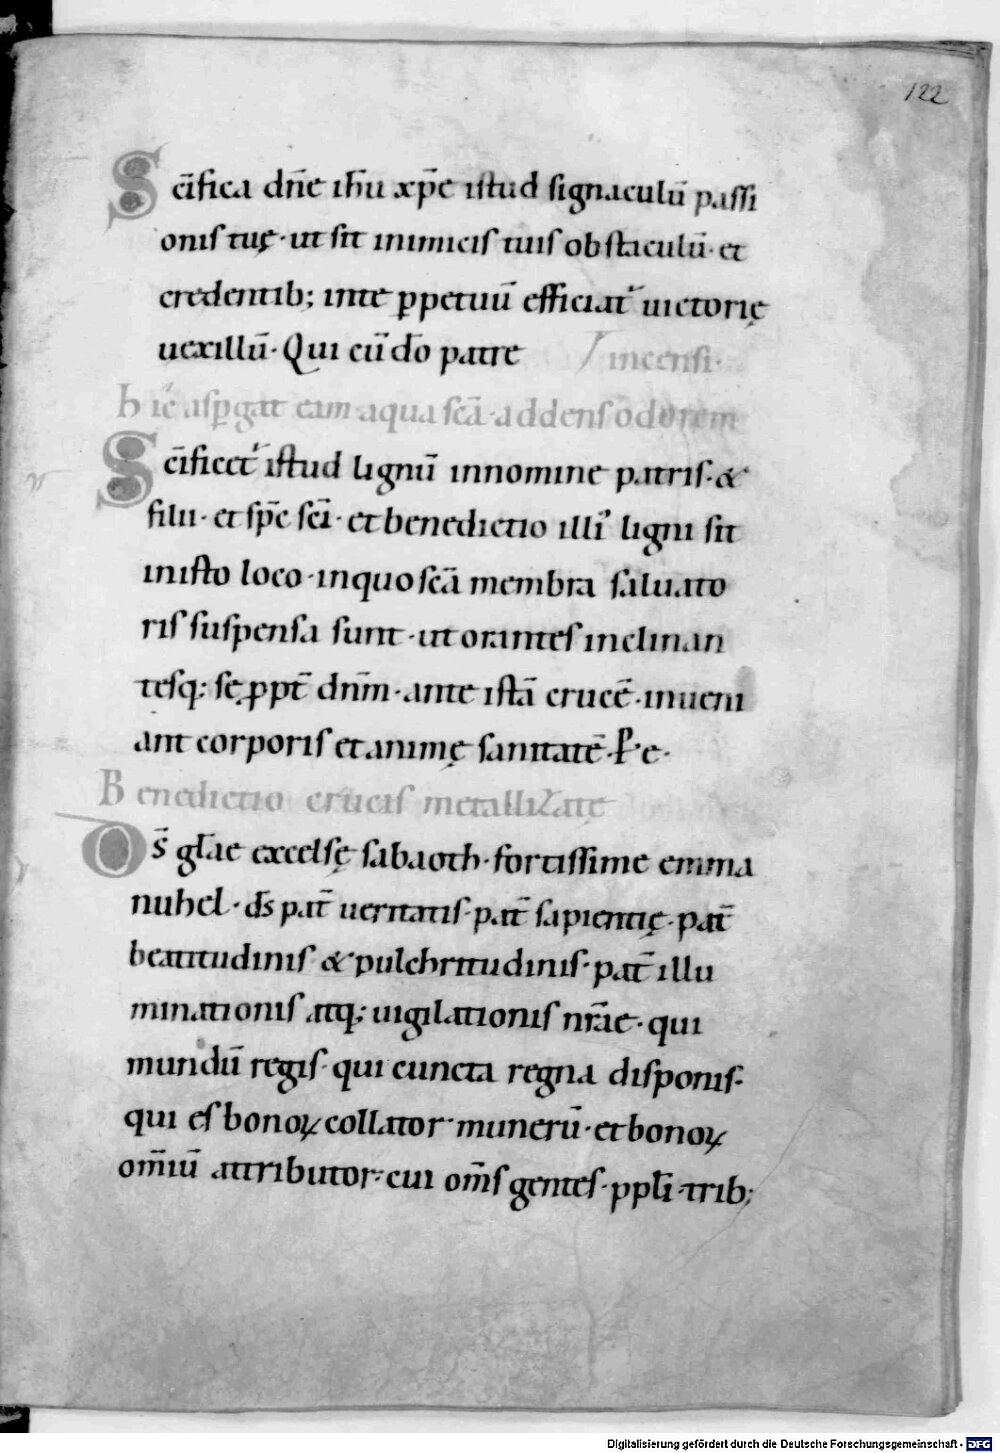 122
Sc̄ifica dn̄e ih̄u xp̄e istud signaculū passi
onis tuę · ut sit inimicis tuis obstaculū · et
credentib; in te ꝑpetuū efficiat᷑ uictorię
uexillū · Qui cū dō patre / incensi ·
hic aspgat eam aqua scā · addens odorem
Sc̄ificet᷑ istud lignū in nomine patris · &
filii · et sp̄c sc̄i · et benedictio illi᷒ ligni sit
in isto loco · in quo sc̄a membra saluato
ris suspensa sunt · ut orantes inclinan
tesq; se ꝓpt̄ dn̄m · ante istā crucē · inueni
ant corporis et animę sanitatē · P · e ·
Benedictio crucis metallizatę
Ds̄ gl̄ae excelsę sabaoth · fortissime emma
nuhel · ds̄ pat̄ ueritatis · pat̄ sapientię · pat̄
beatitudinis & pulchritudinis · pat̄ illu
minationis atq; uigilationis nr̄ae · qui
mundū regis · qui cuncta regna disponis ·
qui es bonoꝝ collator munerū · et bonoꝝ
om̄iū attributor · cui om̄s gentes · ppl̄i · trib;
Digitalisierung gefördert durch die Deutsche Forschungsgemeinschaft - DFG